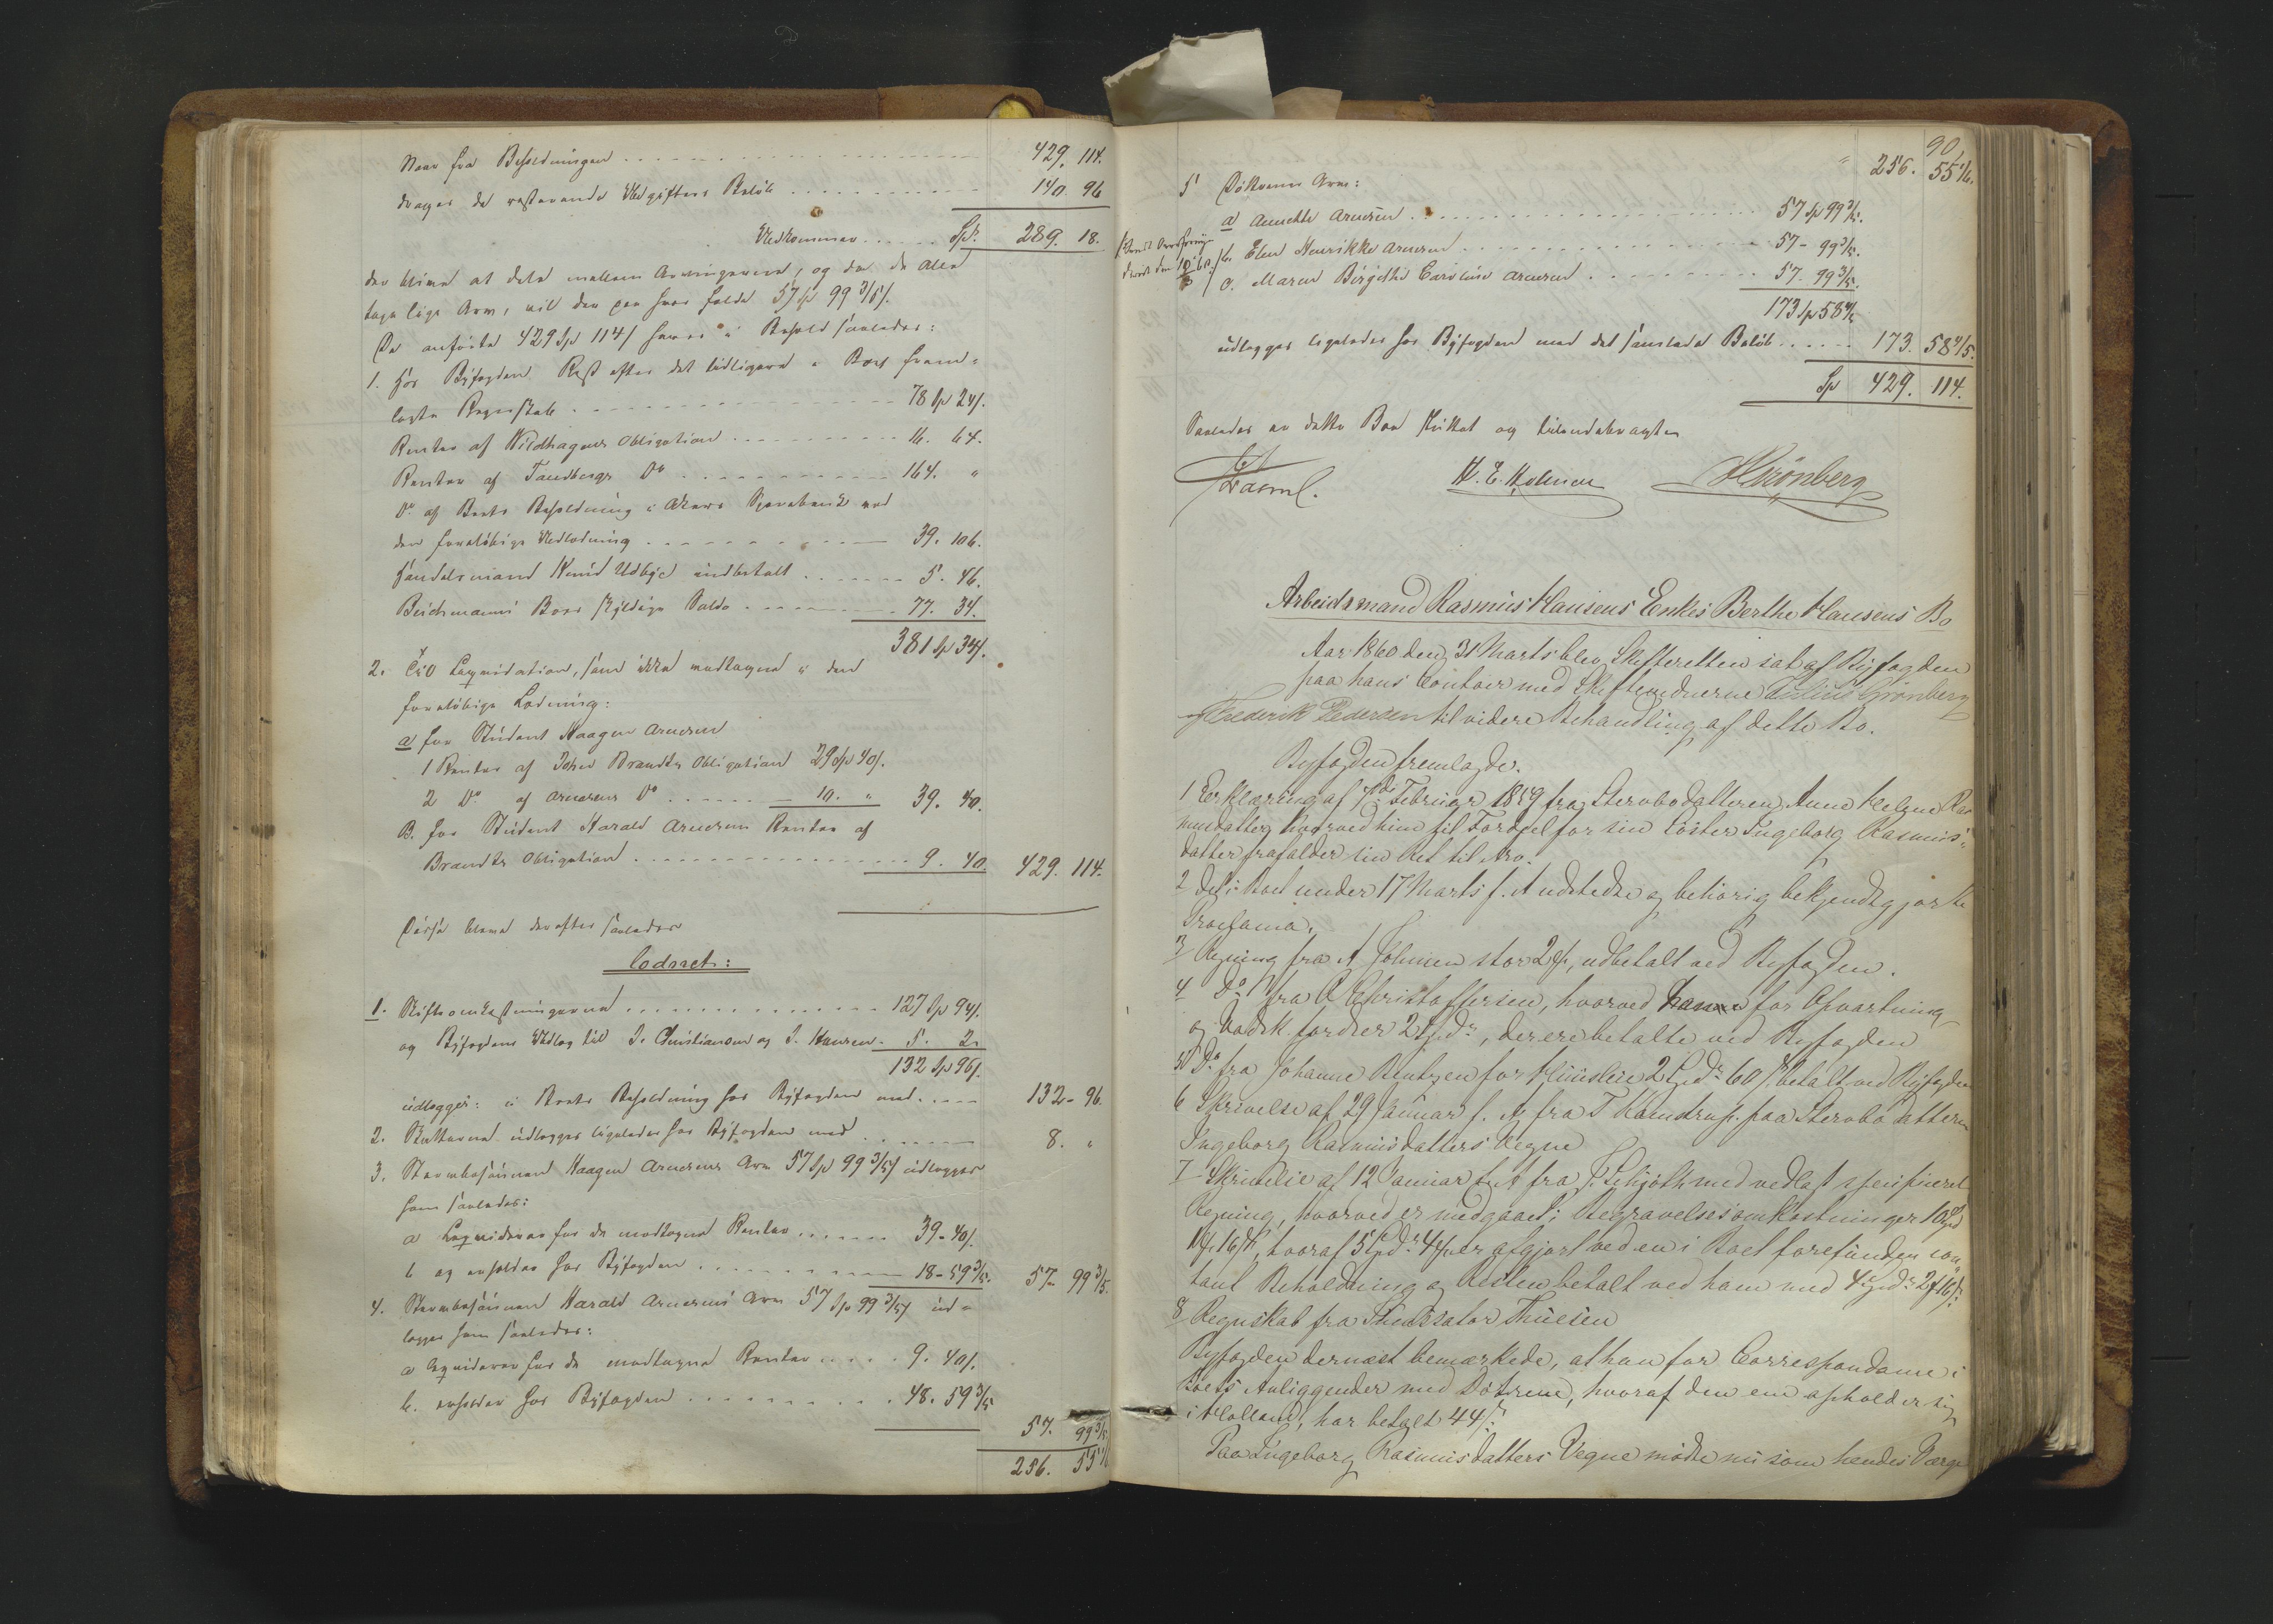 Naar fra Beholdningen 429. 114.
drages de resterende Udgifters Beløb 140. 96
Udkommer Sp. 289. 18.
der blive at dele mellem Arvingerne, og da de alle
tage lige Arv, vil der paa hver falde 57 Sp 99 3/5 ſ.
De anførte 429 Sp 114 ſ haves i Behold saaledes:
1. Hos Byfogden Rest efter det tidligere i Boet frem=
lagte Regnskab 78 Sp 24 ſ.
Renter af Wildhagens Obligation 16. 64.
Renter af Tandbergs Do 164. "
Do af Boets Beholdning i Akers Sparebank ved
den foreløbige Udlodning 39. 106.
Handelsmand Knud Udbye indbetalt 5. 46.
Beichmanns Boes skyldige Saldo 77. 34.
381 Sp 34 ſ.
2. Liqvidation, som ikke medtagne i den
foreløbige Lodning:
a for Student Haagen Arnesen
1 Renter af Johs Brandts Obligation 29 Sp 40 ſ.
2 Do af Arnesens Do 10. " 39. 40.
B. for Student Harald Arnesen Renter af
Brandts Obligation 9. 40. 429. 114.
Disse bleve derefter saaledes
loddet:
1. Skifteomkostningerne 127 Sp 94 ſ.
og Byfogdens Udlæg til J. Christiansen og J. Hansen 5. 2.
132 Sp 96 ſ.
udlægges i Boets Beholdning hos Byfogden med 132- 96.
2. udlægges ligeledes hos Byfogden med 8. "
3. Stervbosønnen Haagen Arnesens Arv 57 Sp 99 3/5 ſ udlægges
ham saaledes:
a Liqviderer for de modtagne Renter 39- 40 ſ.
b og erholder hos Byfogden 18- 59 3/5. 57- 99 3/5.
4. Stervbosønnen Harald Arnesens Arv 57 Sp 99 3/5 ſ ud=
lægges ham saaledes:
a liqviderer for de modtagne Renter 9. 40 ſ.
b. erholder hos Byfogden 48. 59 3/5
57. 99 3/5.
256. 55 1/5
90
" 256. 55 1/5.
5 Døttrenes Arv:
a Annette Arnesen 57 Sp 99 3/5.
b. Elen Henrikke Arnesen 57- 99 3/5.
c. Maren Birgitte Caroline Arnesen 57. 99 3/5.
173 Sp 58 4/5
udlægges ligeledes hos Byfogden med det samlede Beløb 173. 58 4/5.
Sp 429. 114.
Saaledes er dette Boe skiftet og tilendebragt
H. E. Grønberg
Arbeidsmand Rasmus Hansens Enkes Berthe Hansens Bo
Aar 1860 den 31 Marts blev Skifteretten sat af Byfogden
paa hans Contoir med Skiftevidnerne Grønberg
og Frederik Pedersen til videre Behandling af dette Bo.
Byfogden fremlagde.
1 Erklæring af 7de Februar 1859 fra Stervbodatteren Anne Helene Ras
musdatter hvorved hun til Fordeel for sin Søster Ingeborg Rasmus=
datter frafalder sin Ret til Arv.
2 Det i Boet under 17 Marts f. A udstedte og behørig bekjendtgjorte
Proclama.
3 Regning fra A Johnsen stor 2 ₰, udbetalt ved Byfogden.
4 Do fra Christoffersen, hvorved for Opvartning
og Vadsk fordrer 2 Spdr, der ere betalte ved Byfogden
5 Do fra Johanne Bentzen for Huusleie 2 Spdr 60 ſ betalt ved Byfogden
6 Skrivelse af 29 Januar f. A fra T Kamstrup paa Stervbodatteren
Ingeborg Rasmusdatters Vegne
7 Skrivelse af 12 Januar f. A fra F. Schjøth med vedlagt specificeret
Regning, hvorved er medgaaet i Begravelsesomkostninger 10 Spd
16 ſ, hvoraf 5 Spdr 4 er afgjort ved en i Boet forefunden con=
tant Beholdning og Resten betalt ved ham med 4 Spdr 2 16 ſ.
8 Regnskab fra Incassator Thuesen
Byfogden dernæst bemærkede, at han for Correspondance i
Boets Anliggender med Døtrene, hvoraf den ene opholder sig
i Holland, har betalt 44 ſ.
Paa Ingeborg Rasmusdatters Vegne mødte nu som hendes Værge